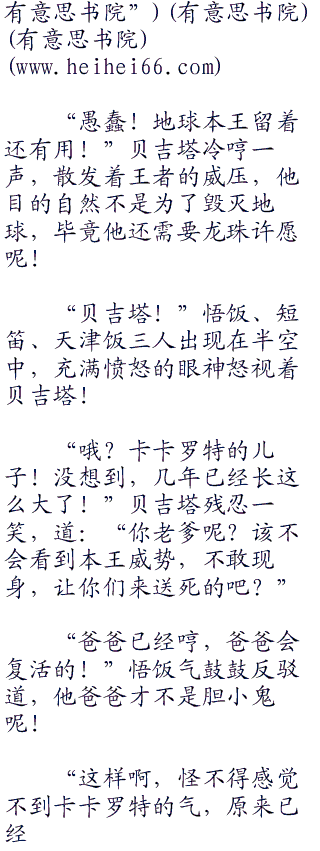 有意思书院”)(有意思书院)
(有意思书院)
(www.heihei66.com)
“愚蠢！地球本王留着
还有用！”贝吉塔冷哼一
声，散发着王者的威压，他
目的自然不是为了毁灭地
球，毕竟他还需要龙珠许愿
呢！
“贝吉塔！”悟饭、短
笛、天津饭三人出现在半空
中，充满愤怒的眼神怒视着
贝吉塔！
“哦？卡卡罗特的儿
子！没想到，几年已经长这
么大了！”贝吉塔残忍一
笑，道：“你老爹呢？该不
会看到本王威势，不敢现
身，让你们来送死的吧？”
“爸爸已经哼，爸爸会
复活的！”悟饭气鼓鼓反驳
道，他爸爸才不是胆小鬼
呢！
“这样啊，怪不得感觉
不到卡卡罗特的气，原来已
经